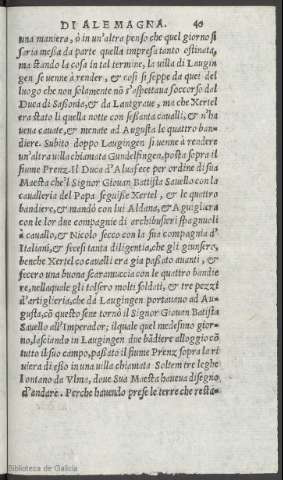 DI ALEMAGNA. 40
una maniera, ò in un'altra penso che quel giorno si
saria messa da parte quella impresa tanto ostinata,
ma stando la cosa in tal termine, la uilla di Laugin
gen se uenne à render, & cosi si seppe da quei del
luogo che non solamente nō s'aspettaua soccorso dal
Duca di Sassonia, & da Lantgraue, ma che Xertel
era stato lì quella notte con sessanta caualli, & n'ha
uena cauate, & menate ad Augusta le quattro ban-
diere. Subito doppo Laugingen si uenne à rendere
un'altra uilla chiamata Gundelfingen, posta sopra il
fiume Prenz. Il Duca d'Alua fece per ordine di sua
Maesta che'l Signor Giouan Battista Sauello con la
caualleria del Papa seguisse Xertel, & le quattro
bandiere, & mandò con lui Aldana, & Aguigliera
con le lor due compagnie di archibusieri spagnuoli
à cauallo, & Nicolo secco con la sua compagnia d'
Italiani, & fecesi tanta diligentia, che gli giunsero,
benche Xertel co caualli era gia passato auanti, &
fecero una buona scaramuccia con le quattro bandie
re, nellaquale gli tolsero molti soldati, & tre pezzi
d'artigliera, che da Laugingen portauano ad Au-
gusta, cō questo sene tornò il Signor Giouan Batista
Sauello all'Imperador; ilquale quel medesimo gior-
no, lasciando in Laugingen due bādiere alloggiò cō
tutto il suo campo, passato il fiume Prenz sopra la ri
uiera di esso in una uilla chiamata Soltem tre leghe
lontano da Vlma, doue Sua Maesta haueua disegno
d'andare. Perche hauendo prese le terre che resta-
Biblioteca de Galicia